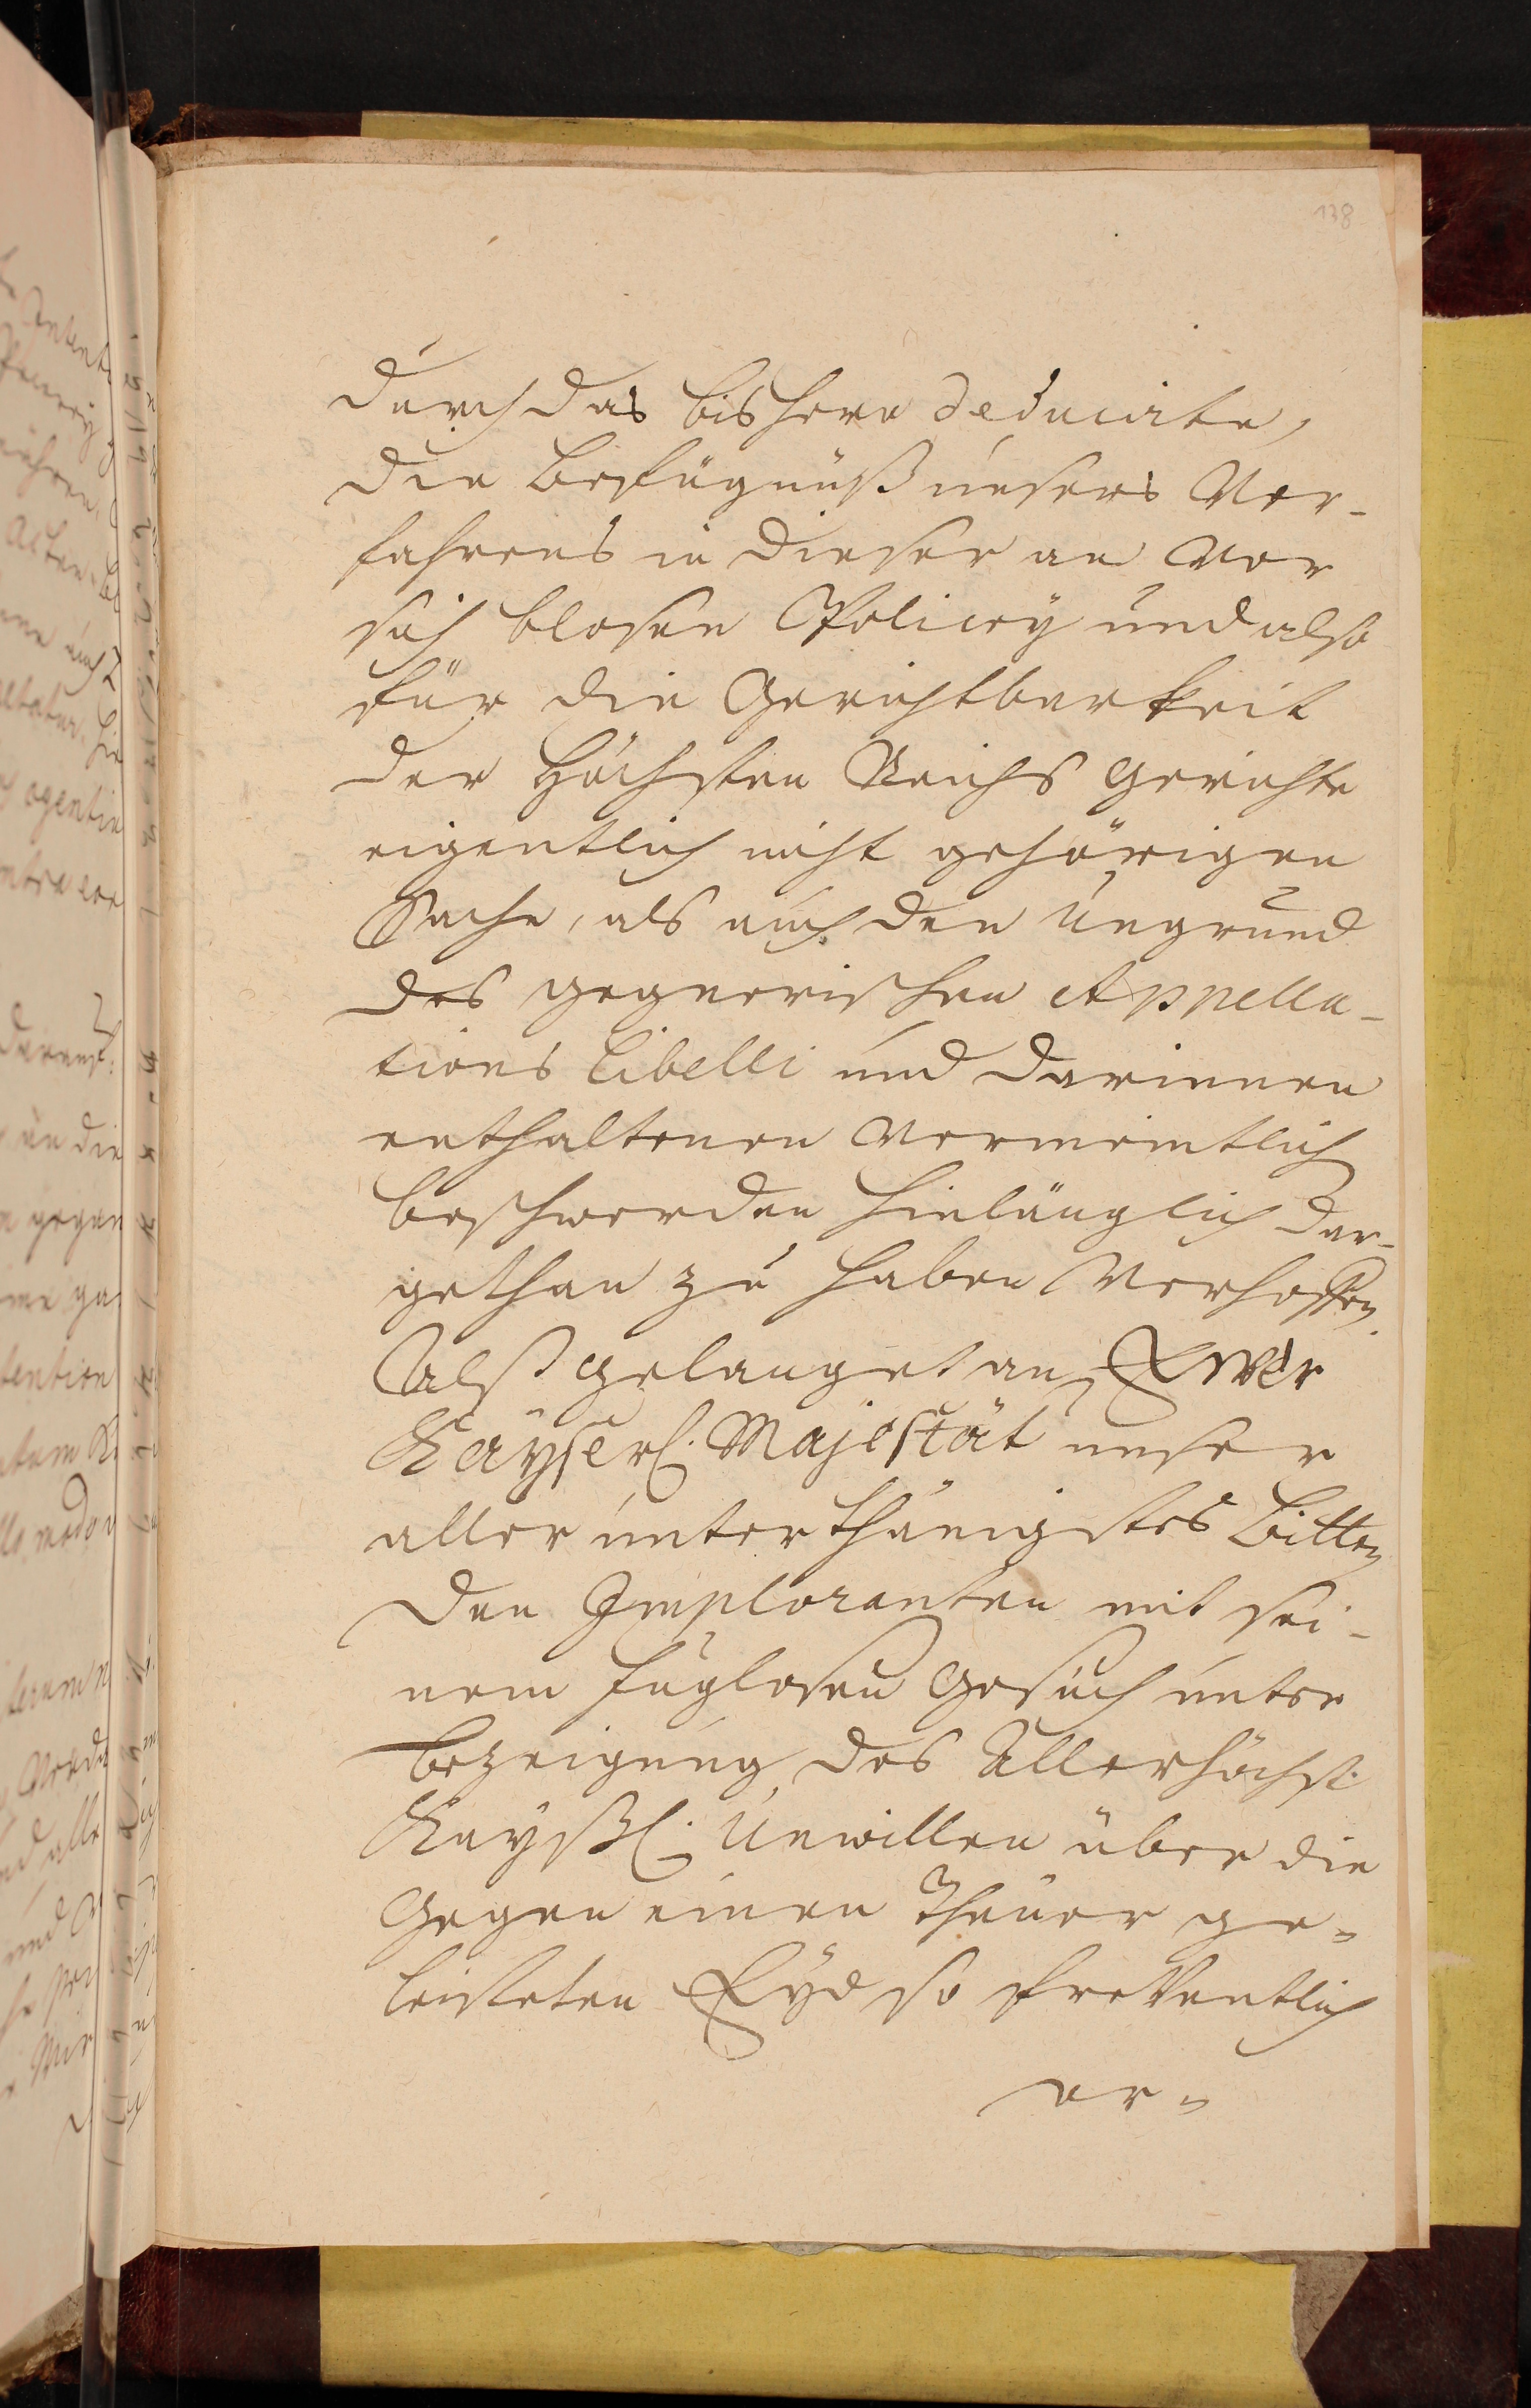 138
durch das bishero deducirte,
die Befügnüß unsers Ver-
fahrens in dieser an vor
sich blosen Policey und also
für die Gerichtbarkeit
der Höchsten Reichs Gerichte
eigentlich nicht gehörigen
Sache, als auch den Ungrund
des gegnerischen Appella-
tions Libelli und darinnen
enthaltenen vermeintlich
beschwerden hinlänglich dar-
gethan zu haben verhoffen.
Alß gelanget an Ewer
Kaÿserl. Majestät unser
aller unterthänigstes Bitten
den Imploranten mit sei-
nem fuglosen Gesuch unter
bezeigung des Allerhöchst.
Kayßl. Unwillen über die
Gegen einen theuer ge-
leisteten Eyd so freventlich
er-